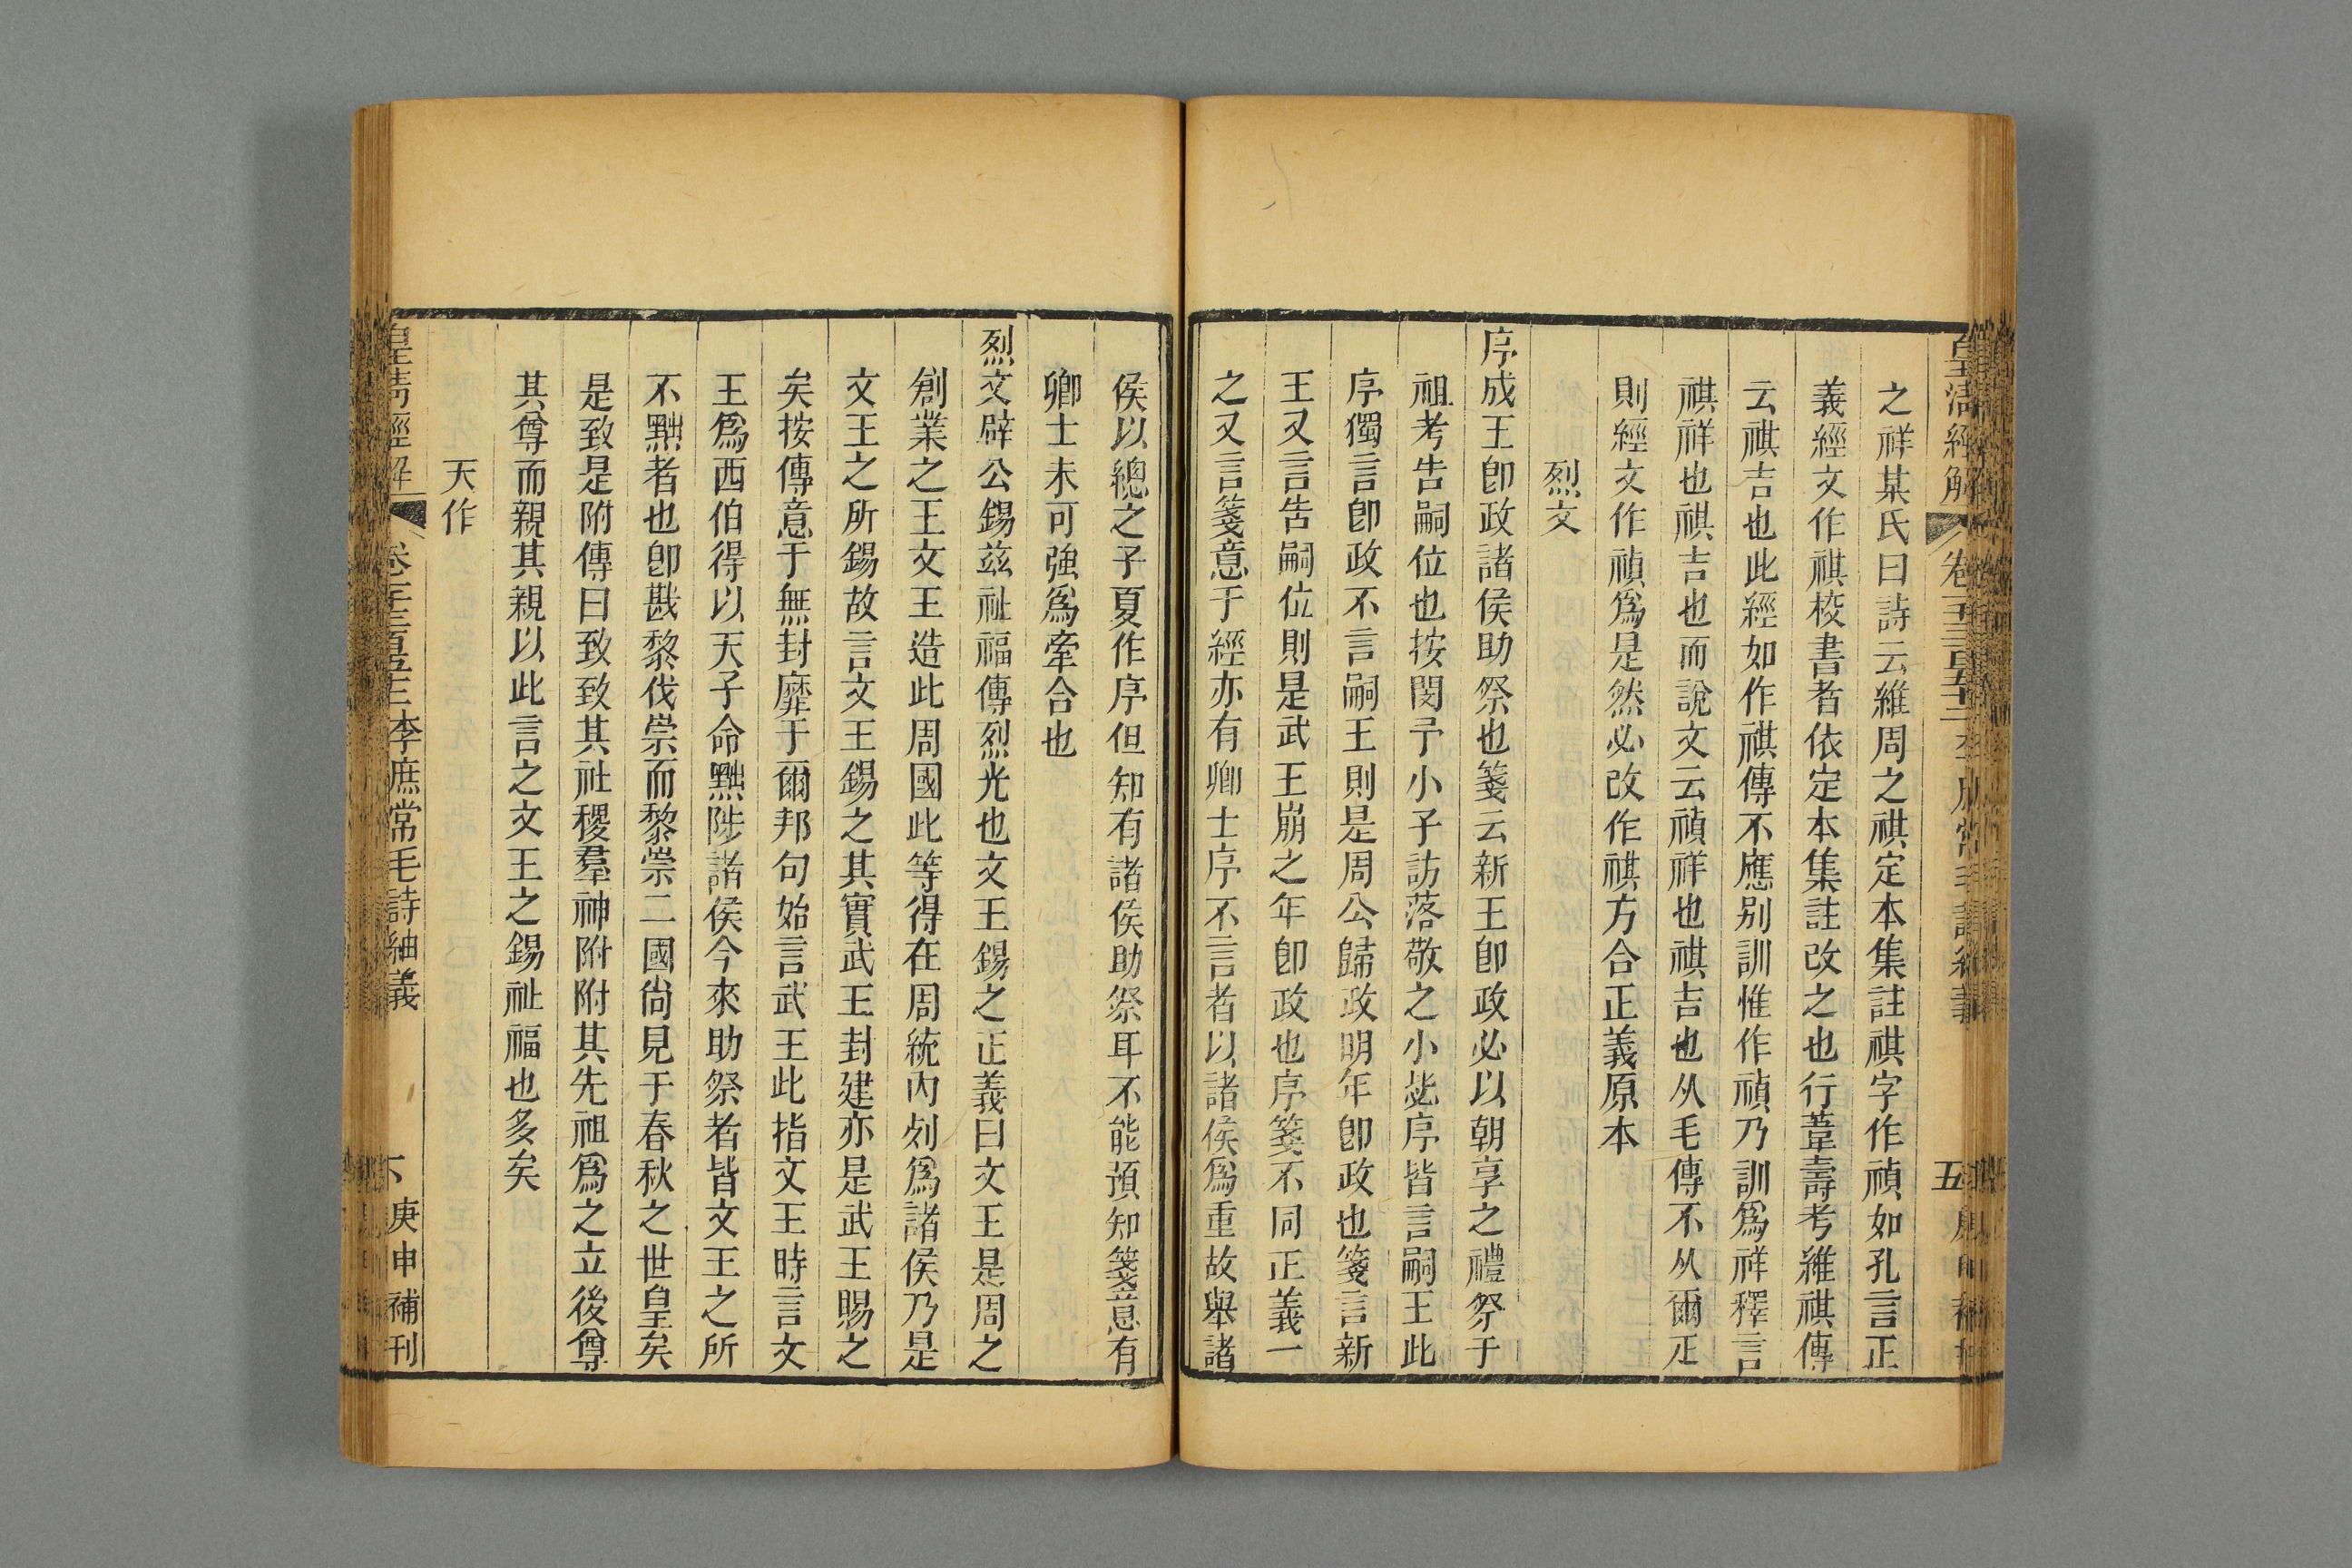 皇清經解
五
之祥某氏曰詩云維周之祺定本集註祺字作禎如孔言正
義經文作祺校書者依定本集註改之也行葦壽考維祺傳
云祺吉也此經如作祺傳不應別訓惟作禎乃訓爲祥釋言
祺祥也祺吉也而說文云禎祥也祺吉也从毛傳不从爾疋
則經文作禎爲是然必改作祺方合正義原本
烈文
序成王卽政諸侯助祭也箋云新王卽政必以朝享之禮祭于
祖考告嗣位也按閔予小子訪落敬之小毖序皆言嗣王此
序獨言卽政不言嗣王則是周公歸政明年卽政也箋言新
王又言告嗣位則是武王崩之年卽政也序箋不同正義一
之又言箋意于經亦有卿士序不言者以諸侯爲重故舉諸
侯以總之子夏作序但知有諸侯助祭耳不能預知箋意有
卿士未可強爲牽合也
烈文辟公錫茲祉福傳烈光也文王錫之正義曰文王是周之
創業之王文王造此周國此等得在周統內列爲諸侯乃是
文王之所錫故言文王錫之其實武王封建亦是武王賜之
矣按傳意于無封靡于爾邦句始言武王此指文王時言文
王爲西伯得以天子命黜陟諸侯今來助祭者皆文王之所
不黜者也卽戡黎伐崇而黎崇二國尙見于春秋之世皇矣
是致是附傳曰致致其社稷羣神附附其先祖爲之立後尊
其尊而親其親以此言之文王之錫祉福也多矣
天作
皇清經解
李庶常毛詩紬義
庚申補刊